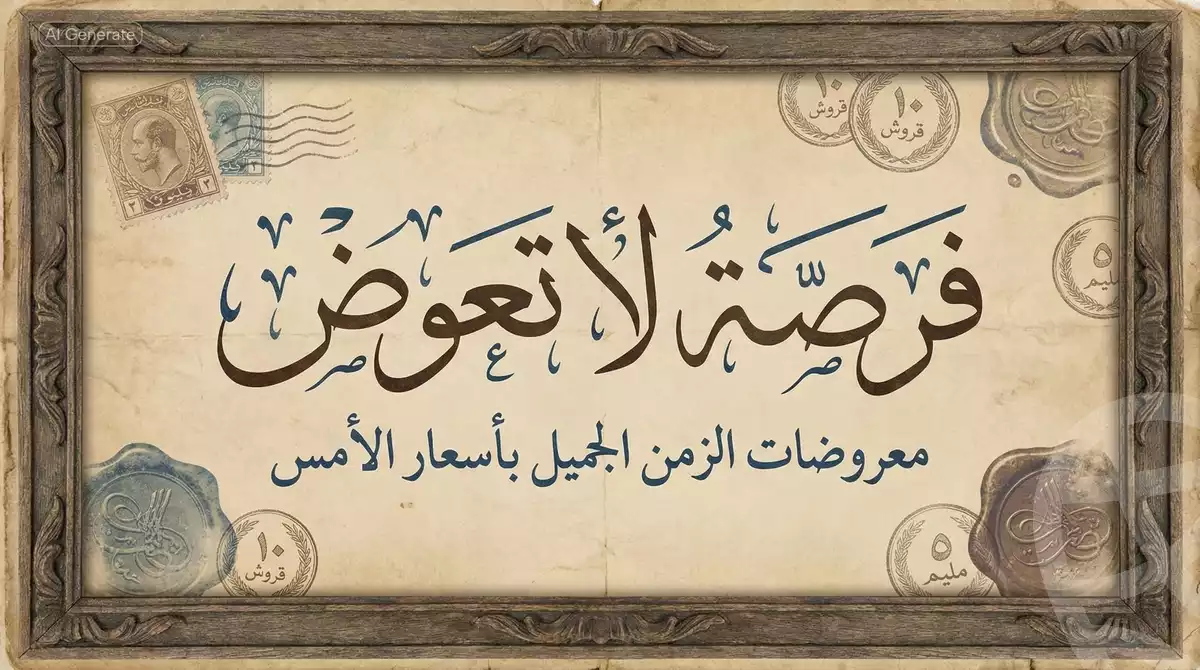 AI Generate
١٠
قروش
١٠
قروش
فُرَصَّة لأ تعوض
معروضات الزمن الجميل بأسعار الأمس
٥
مليم
١٠
قروش
٥
مليم
٢
٢